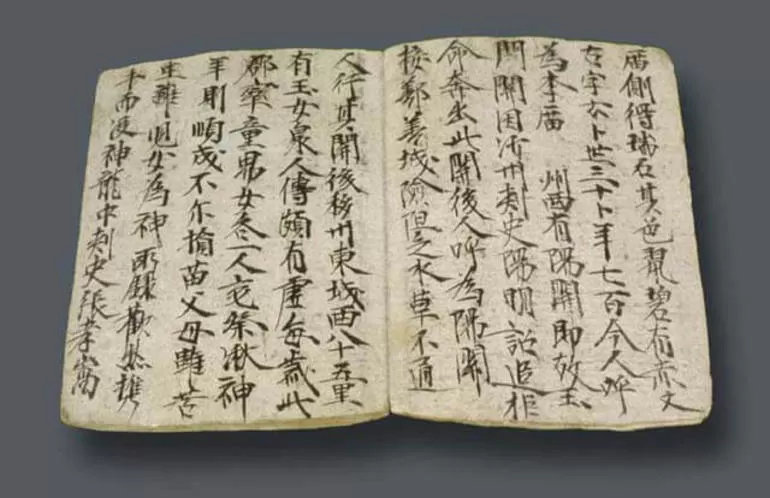 庿側得瑞石其色翠碧有赤文
古字云卜世三十卜年七百今人呼
為李庿　州西有陽關即故玉
門關因沙州刺史陽明詔追拒
命奔出此關後人呼為陽關
接鄯善城險阻乏水草不通
人行其關後移州東城西八十五里
有玉女泉人傳頗有靈每歲此
郡率童男女各一人充祭湫神
年則順成不尒損苗父母雖苦
生離兒女為神所錄歡然携
手而沒神龍中刺史張孝嵩